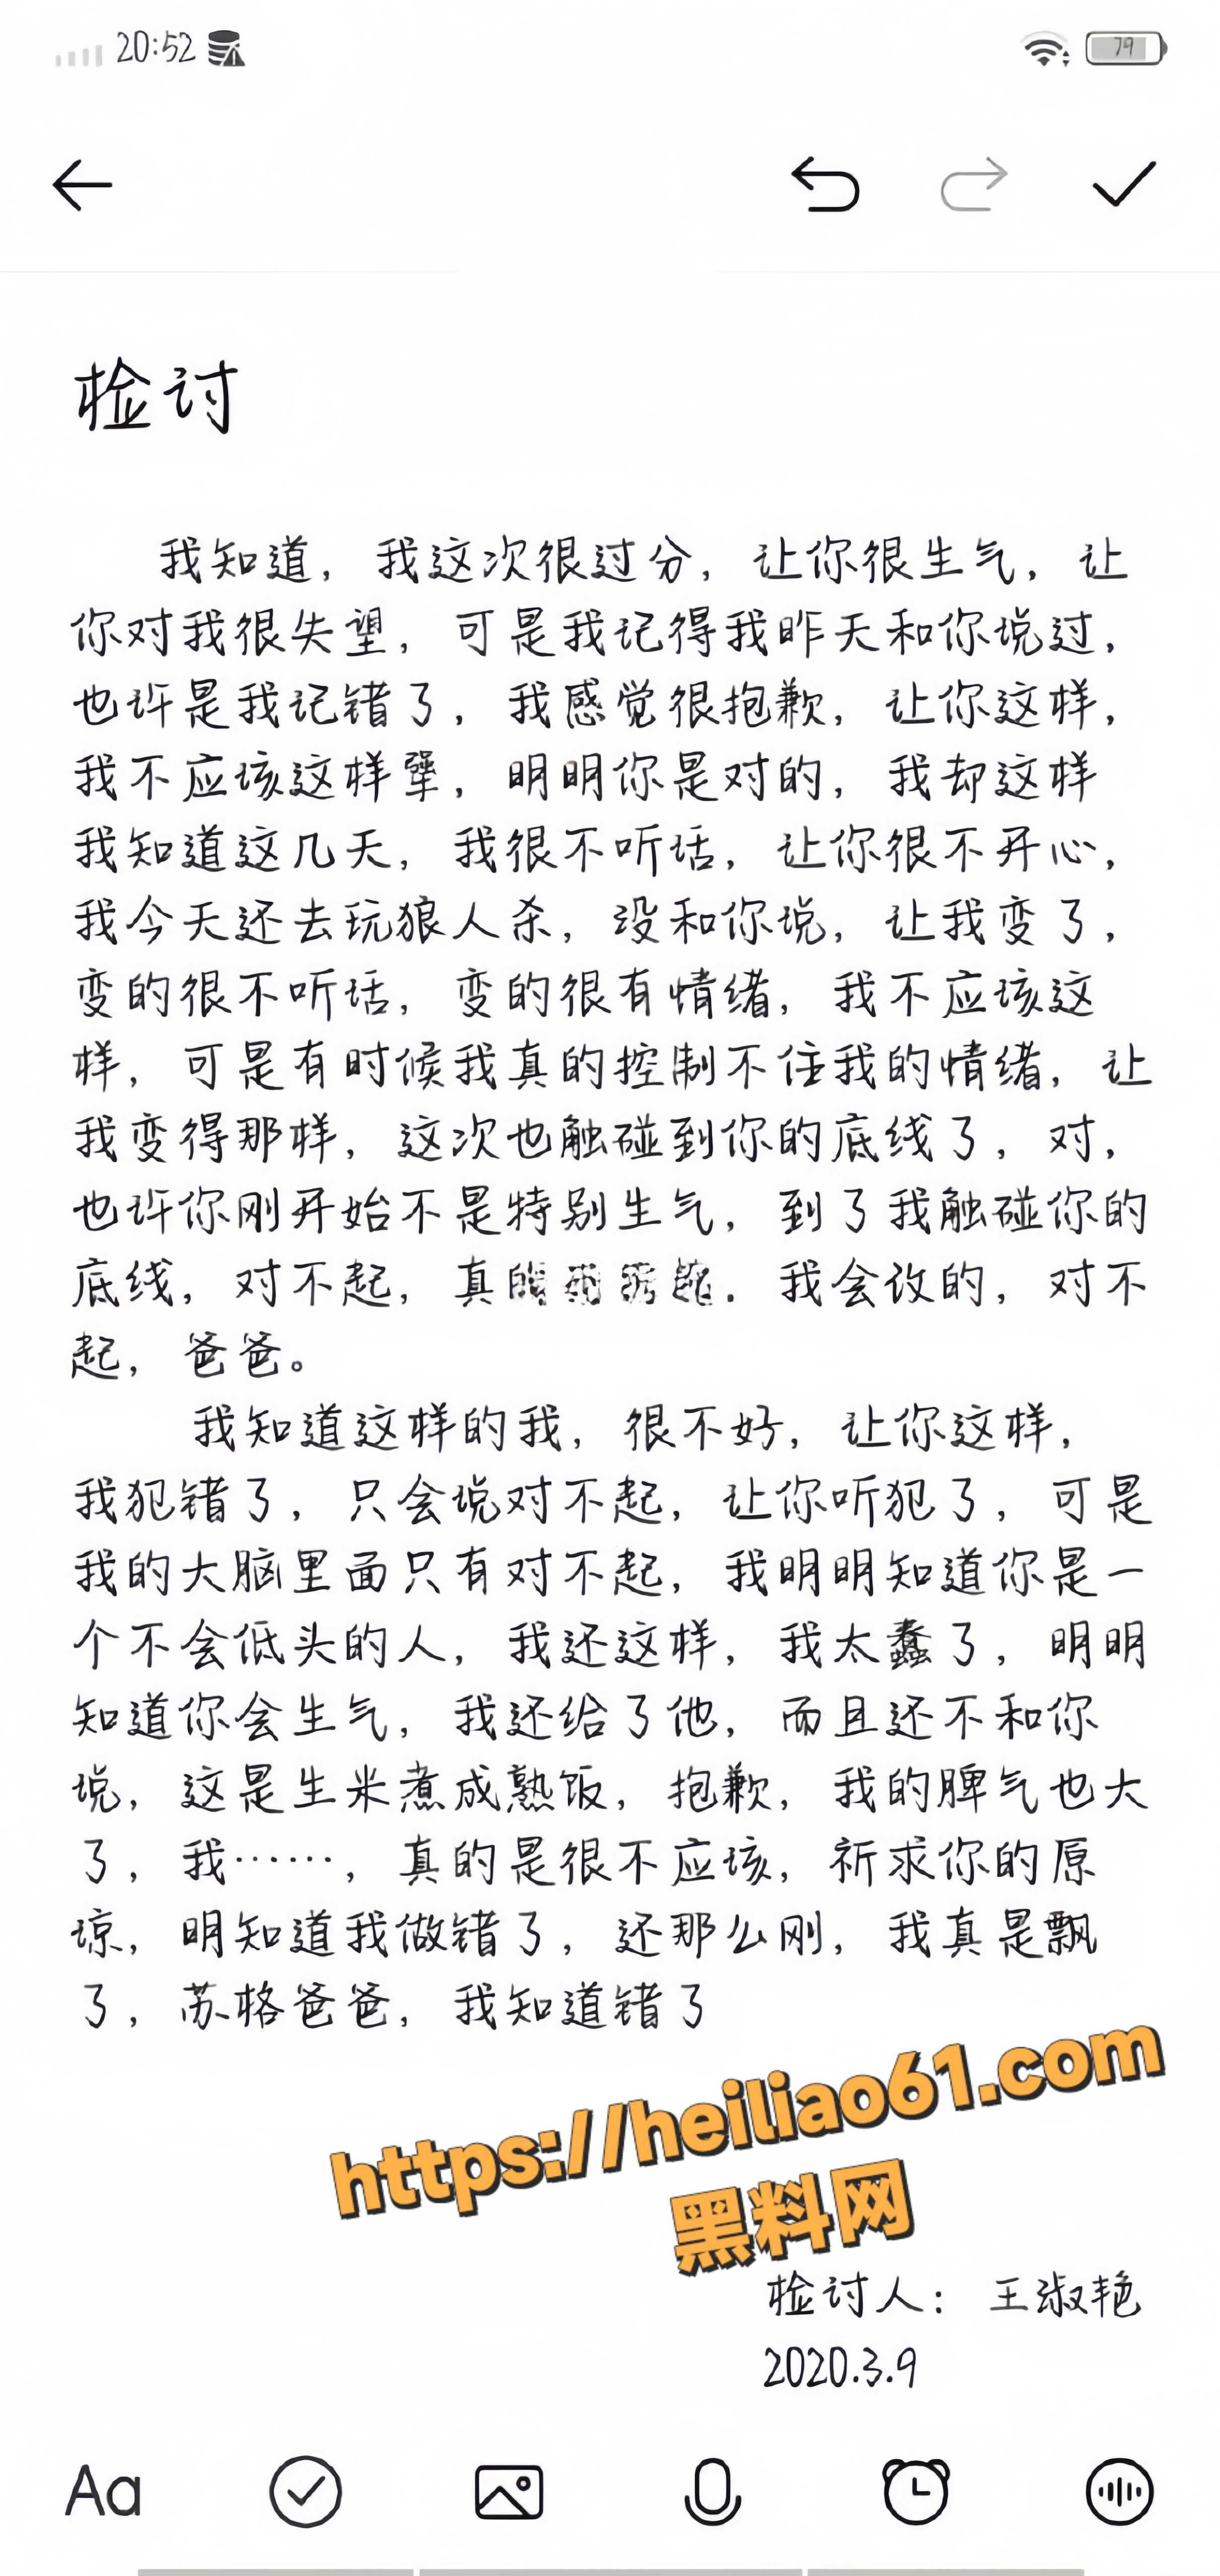 20:52
79
检讨
我知道，我这次很过分，让你很生气，让
你对我很失望，可是我记得我昨天和你说过，
也许是我记错了，我感觉很抱歉，让你这样，
我不应该这样犟，明明你是对的，我却这样
我知道这几天，我很不听话，让你很不开心，
我今天还去玩狼人杀，没和你说，让我变了，
变的很不听话，变的很有情绪，我不应该这
样，可是有时候我真的控制不住我的情绪，让
我变得那样，这次也触碰到你的底线了，对，
也许你刚开始不是特别生气，到了我触碰你的
底线，对不起，真的对不起．我会改的，对不
起，爸爸。
我知道这样的我，很不好，让你这样，
我犯错了，只会说对不起，让你听犯了，可是
我的大脑里面只有对不起，我明明知道你是一
个不会低头的人，我还这样，我太蠢了，明明
知道你会生气，我还给了他，而且还不和你
说，这是生米煮成熟饭，抱歉，我的脾气也大
了，我……，真的是很不应该，祈求你的原
谅，明知道我做错了，还那么刚，我真是飘
了，苏格爸爸，我知道错了
https://heiliao61.com
黑料网
检讨人：王淑艳
2020.3.9
Aa